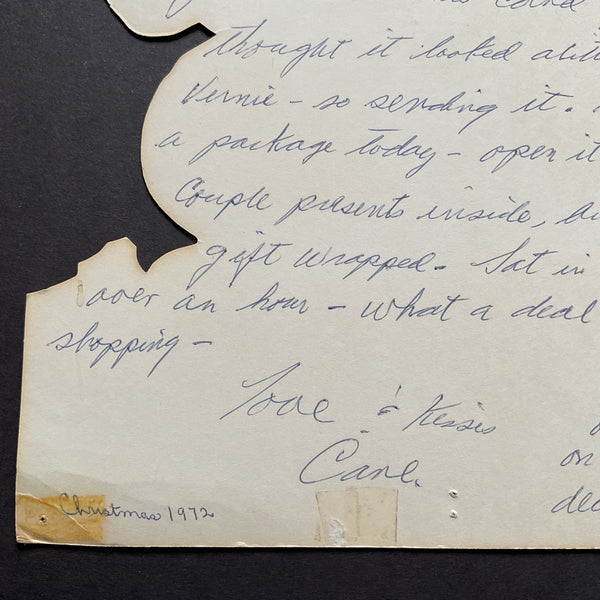 thought it looked
Vernie - so sending it.
a package today - open it
Couple presents inside,
gift wrapped. Sat in
over an hour - what a deal
shopping -
Love & Kisses
on
Christmas 1972